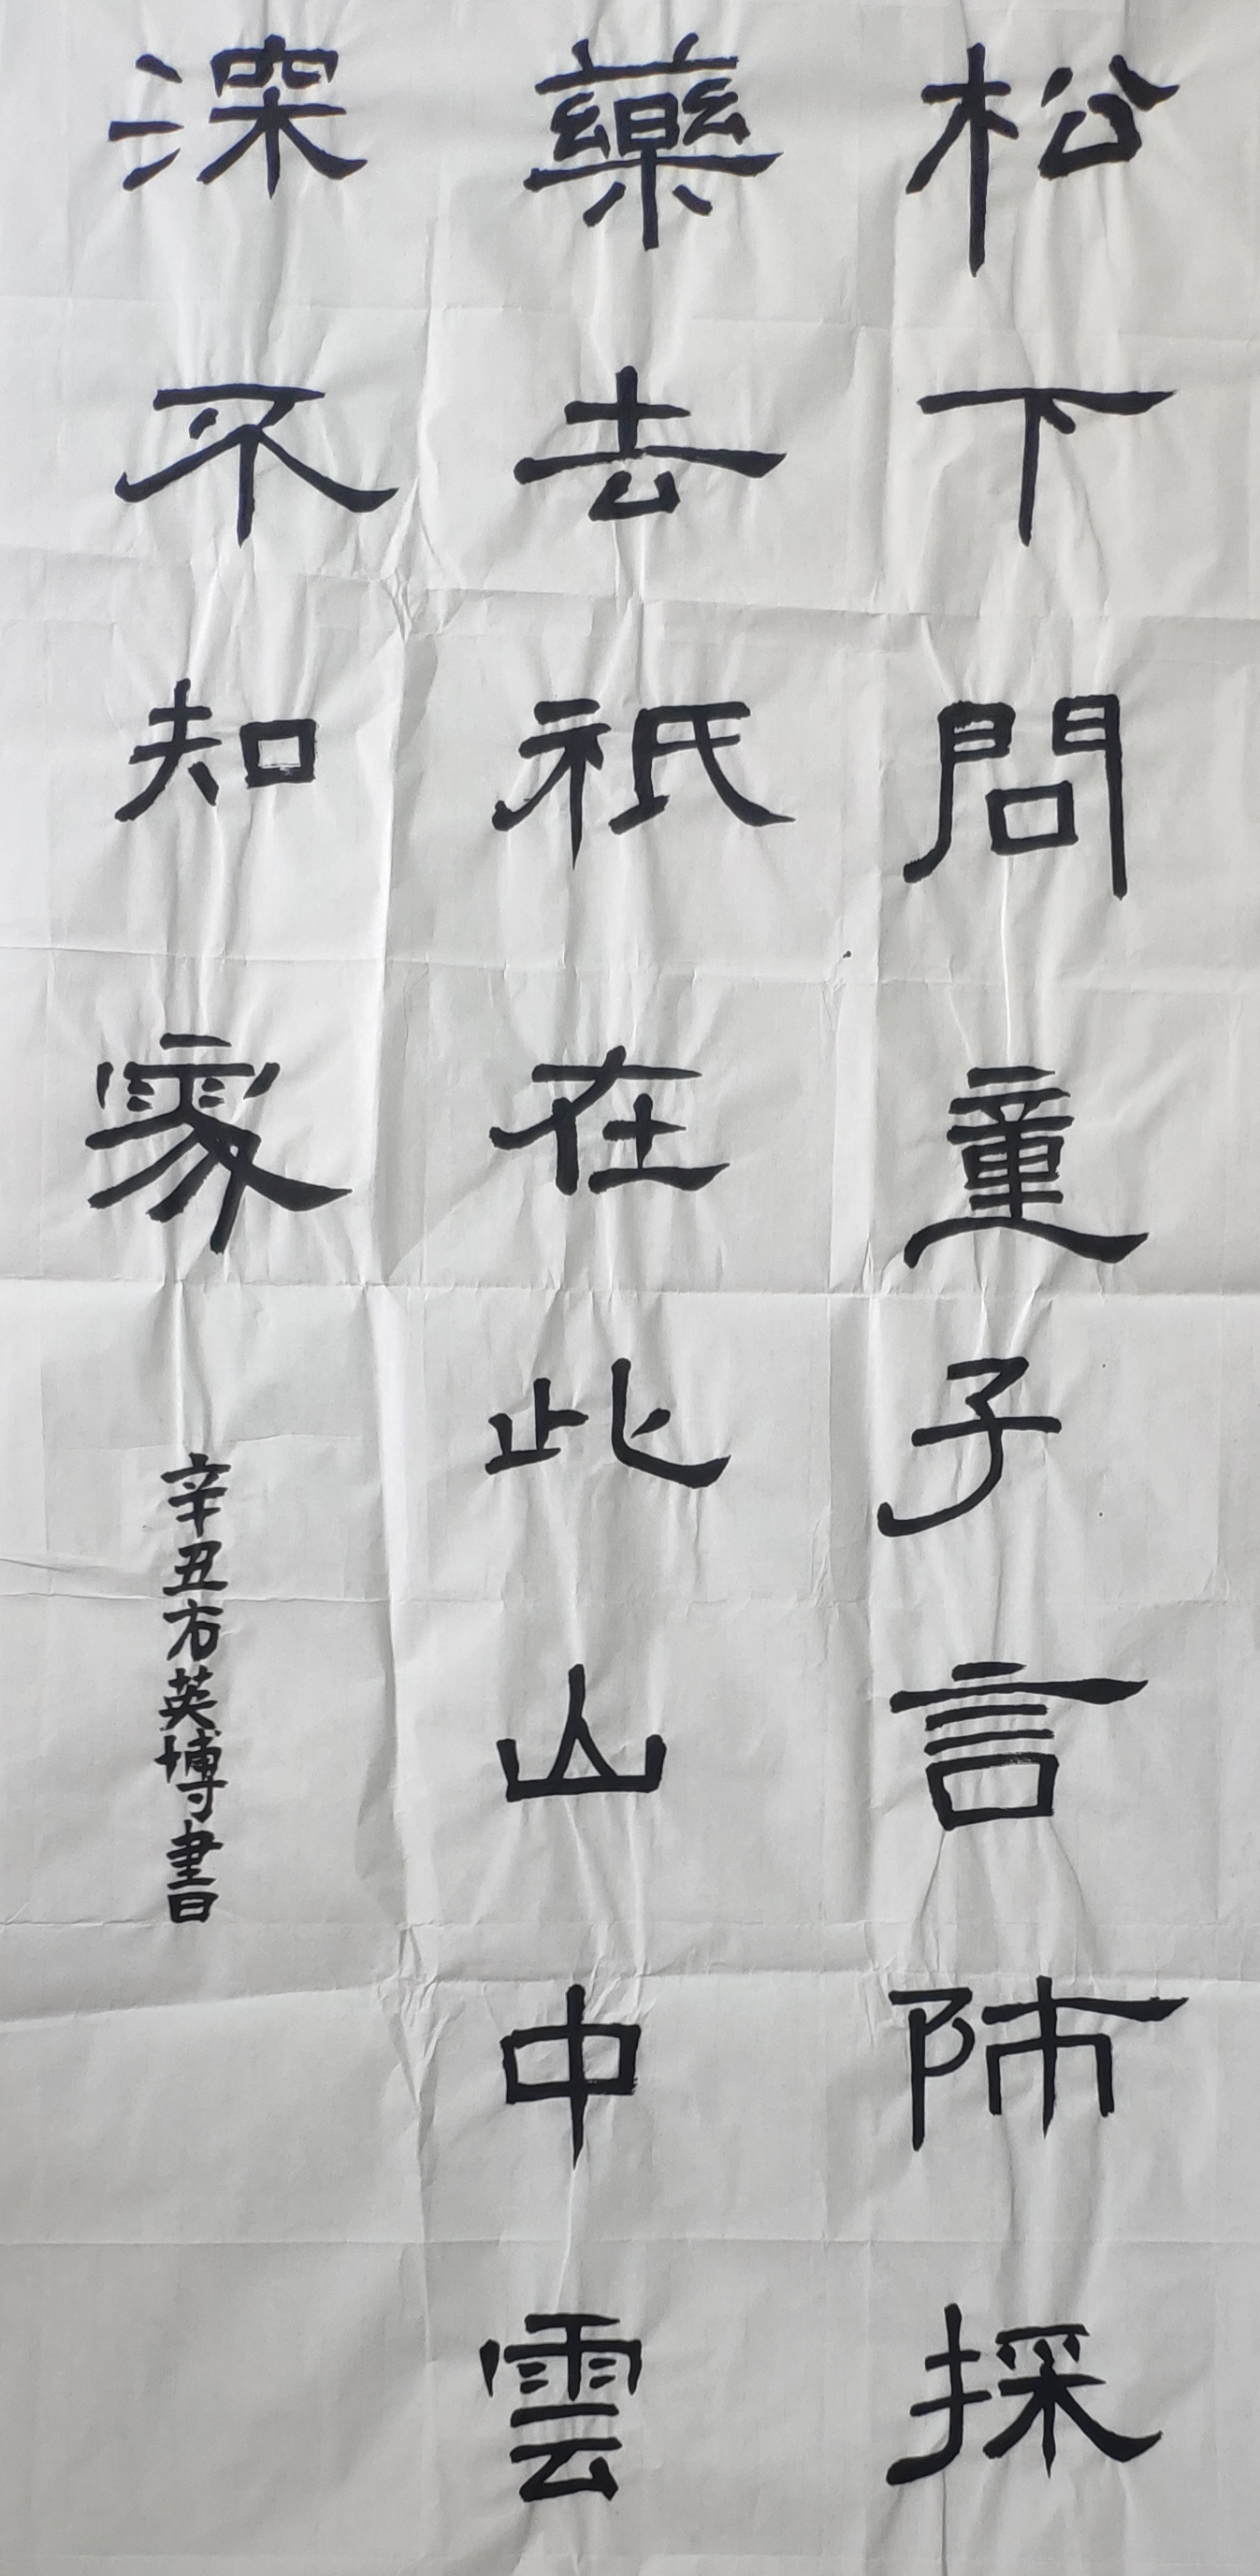 松下問童子言師採
藥去祇在此山中雲
深不知處
辛丑右英博書